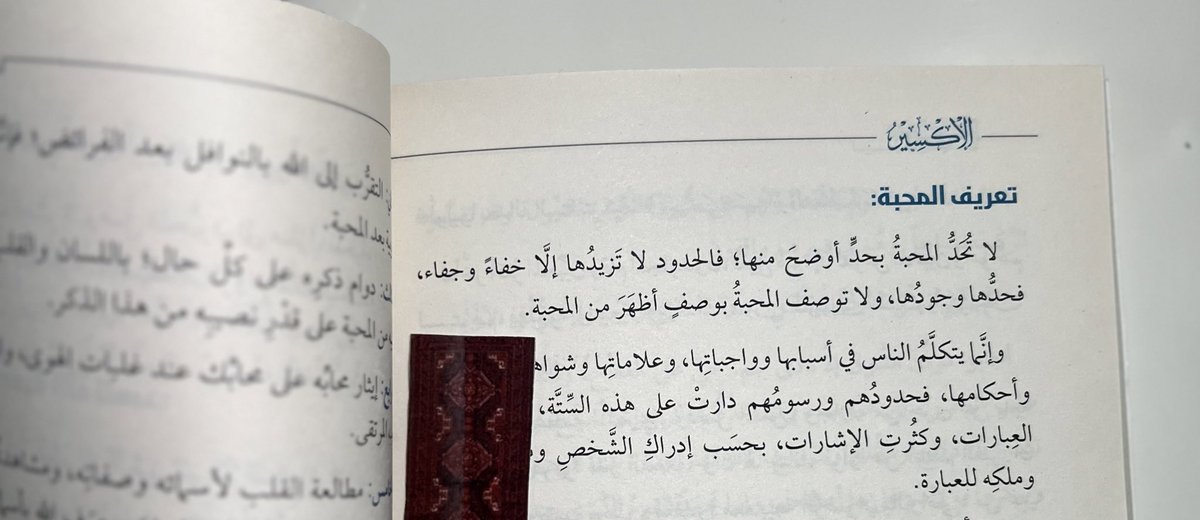 الإكسير
تعريف المحبة:
لا تُحَدُّ المحبةُ بحدٍّ أوضحَ منها؛ فالحدود لا تَزيدُها إلَّا خفاءً وجفاء،
فحدُّها وجودُها، ولا توصف المحبةُ بوصفٍ أظهَرَ من المحبة.
وإنَّما يتكلَّمُ الناس في أسبابها وواجباتِها، وعلاماتِها وشواهـ
وأحكامها، فحدودُهم ورسومُهم دارتْ على هذه السِّتَّة،
العِبارات، وكثُرتِ الإشارات، بحسَب إدراكِ الشَّخصِ
وملكِه للعبارة.
التقرُّب إلى الله بالنوافل بعد الفرائض؛
بعد المحبة.
دوام ذكرِه على كلِّ حال؛ باللسان والقلب
من المحبة على قدْرِ نصيبِه من هذا الذكر.
إيثار محابِّه على محابِّك عند غلبات الهوى،
المرتقى.
مطالعة القلب لأسمائه وصفاته،